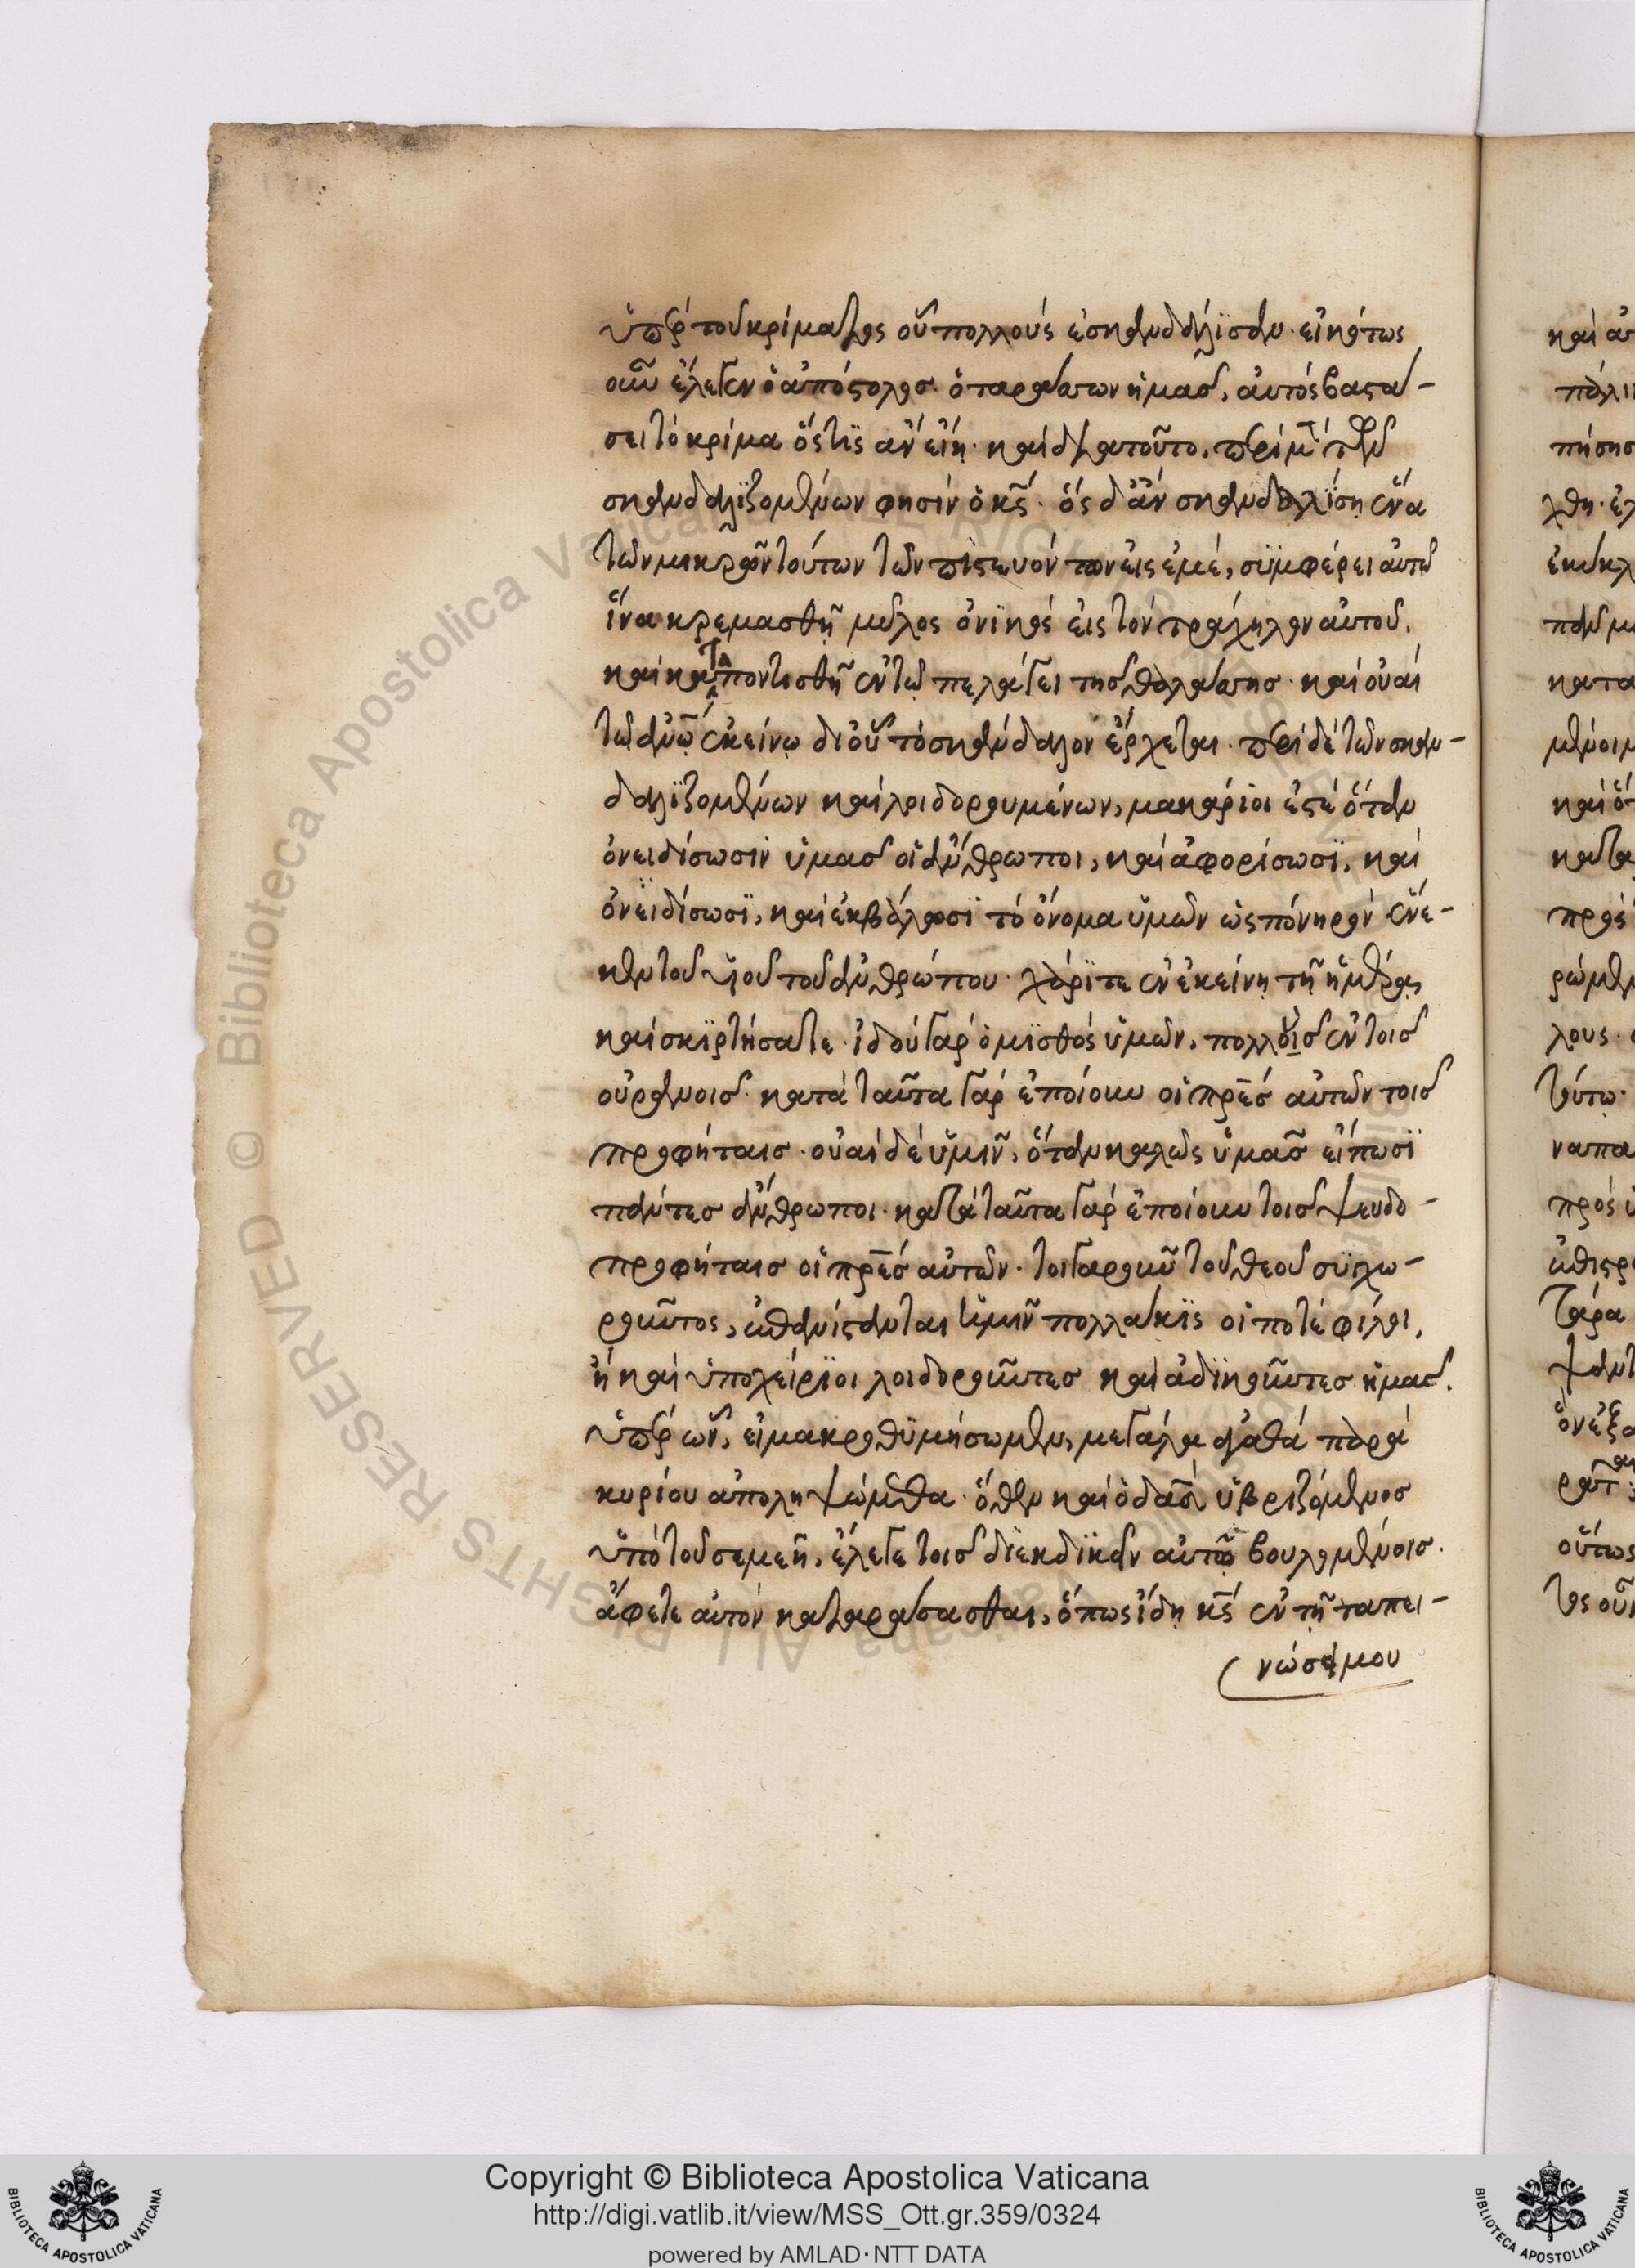 ὑπὲρ τοῦ κρίματος οὗ πολλοὺς ἐσκανδάλϊσαν· εἰκότως
οὖν ἔλεγεν ὁ ἀπόστολος· ὁ ταράσσων ἡμᾶς, αὐτὸς βαστά-
σει τὸ κρίμα ὅστις ἂν εἴη· καὶ διατοῦτο, περὶ μὲν τῶν
σκανδαλϊζομένων φησὶν ὁ κς· ὃς δ' ἂν σκανδαλίσῃ ἕνα
τῶν μικρῶν τούτων τῶν πιστευόντων εἰς ἐμέ, συμφέρει αὐτῷ
ἵνα κρεμασθῇ μύλος ὀνϊκὸς εἰς τὸν τράχηλον αὐτοῦ,
καὶ καταποντισθῇ ἐν τῷ πελάγει τῆς θαλάσσης· καὶ οὐαὶ
τῷ ἀνῶ ἐκείνῳ δι' οὗ τὸ σκάνδαλον ἔρχεται· περὶ δὲ τῶν σκαν-
δαλϊζομένων καὶ λοιδορουμένων, μακάριοι ἐστὲ ὅταν
ὀνειδίσωσιν ὑμᾶς οἱ ἄνθρωποι, καὶ ἀφορίσωσϊ, καὶ
ὀνειδίσωσϊ, καὶ ἐκβάλωσϊ τὸ ὄνομα ὑμῶν ὡς πονηρὸν ἕνε-
κεν τοῦ υἱοῦ τοῦ ἀνθρώπου· χάρϊτε ἐν ἐκείνῃ τῇ ἡμέρᾳ
καὶ σκϊρτήσατε· ἰδοὺ γὰρ ὁ μϊσθὸς ὑμῶν, πολλοὺς ἐν τοῖς
οὐρανοῖς· κατὰ ταῦτα γὰρ ἐποίουν οἱ πρες αὐτῶν τοῖς
προφήταις· οὐαὶ δὲ ὑμῖν, ὅταν καλῶς ὑμᾶς εἴπωσϊ
πάντες ἄνθρωποι· κατὰ ταῦτα γὰρ ἐποίουν τοῖς ψευδο-
προφήταις οἱ πρες αὐτῶν· τοιγαροῦν τοῦ θεοῦ συγχω-
ροῦντος, ἐπανίστανται ἡμῖν πολλάκϊς οἱ ποτὲ φίλοι,
ἢ καὶ ὑποχείρϊοι λοιδοροῦντες καὶ ἀδϊκοῦντες ἡμᾶς.
ὑπὲρ ὧν, εἰ μακροθυμήσωμεν, μεγάλα ἀγαθὰ παρὰ
κυρίου ἀποληψώμεθα· ὅθεν καὶ ὁ δαδ ὑβριζόμενος
ὑπὸ τοῦ σεμεῆ, ἔλεγε τοῖς διεκδϊκᾶν αὐτῷ βουλομένοις·
ἄφετε αὐτὸν καταράσασθαι, ὅπως ἴδῃ κς ἐν τῇ ταπει-
νώσει μου